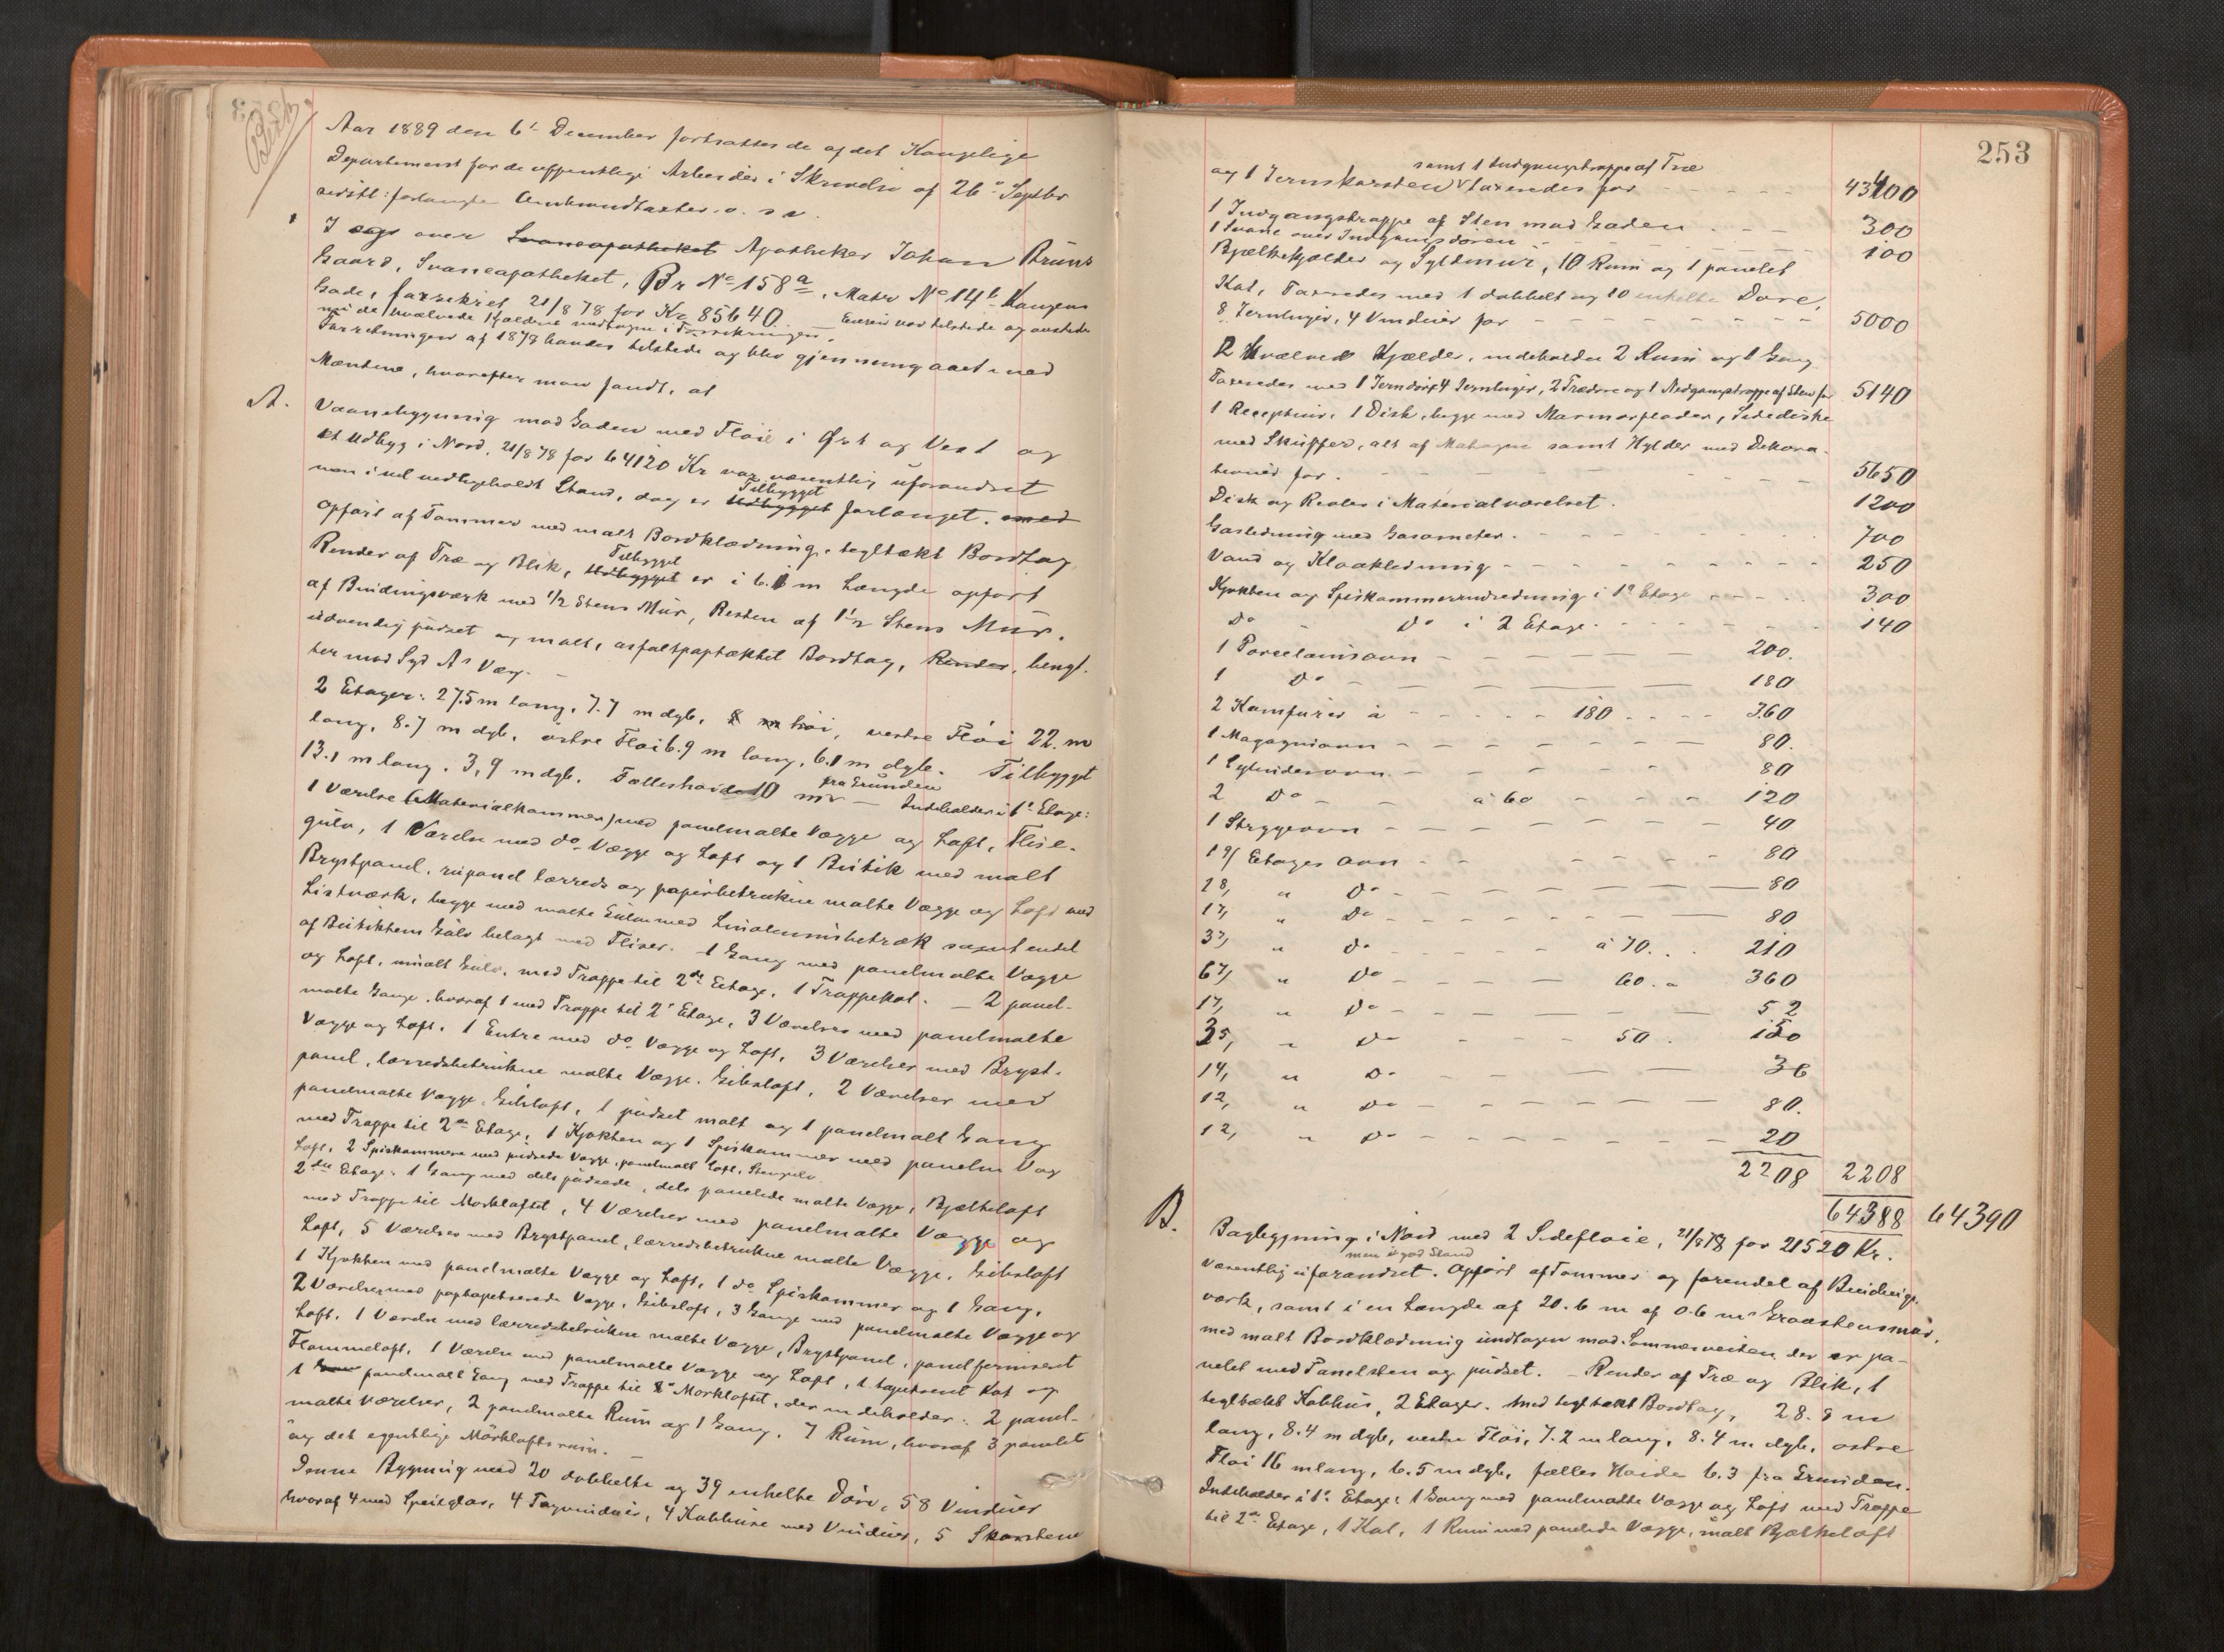 Aar 1889 den 6' December fortsattes de af det Kongelige
Departement for de offentlige Arbeider i Skrivelse af 26' Septbr
sidstl: forlangte Ombrandtaxter o. s v.
I sag over Svaneapotheket Apotheker Johan Brüns
Gaard, Svaneapotheket, Br No 158a, Matr No 14b Kongens
Gade, forsikret 21/8 78 for Kr 85640. Eieren var tilstede og ønskede
nu de hvælvede Kjældere medtagne i Forsikringen.
Forretningen af 1878 havdes tilstede og blev gjennemgaaet med
Mændene, hvorefter man fandt, at
A. Vaanebygning mod Gaden med Fløie i Øst og Vest og
et Udbyg i Nord, 21/8 78 for 64120 Kr var væsentlig uforandret
men i vel vedligeholdt Stand, dog er Udbygget Tilbygget forlænget. med
Opført af Tømmer med malt Bordklædning, tegltækt Bordtag
Render af Træ og Blik, Udbygget Tilbygget er i 6.1 m Længde opført
af Bindingsværk med 1/2 Stens Mür, Resten af 1 1/2 Stens Mür.
udvendig püdset og malt, asfaltpaptækket Bordtag, Render, bengt.
ter mod Syd A's Væg. —
2 Etager: 27.5 m lang, 7.7 m dyb, 8 m høi, vestre Fløi 22. m
lang, 8.7 m dyb, østre Fløi 6.9 m lang, 6.1 m dyb. Tilbygget
13.1 m lang, 3,9 m dyb. Fælleshøide 10 m fra Grunden — Indeholder i 1' Etage:
1 Værelse (Materialkammer) med panelmalte Vægge og Loft, Flise-
gülv, 1 Værelse med do Vægge og Loft og 1 Bütik med malt
Brystpanel, rupanel lærreds og papirbetrukne malte Vægge og Loft med
Listværk, begge med malte Gülve med Linoleumsbetræk samt endel
af Bütikkens Gülv belagt med Fliser. 1 Gang med panelmalte Vægge
og Loft, umalt Gulv, med Trappe til 2de Etage, 1 Trappekot. — 2 panel-
malte Gange, hvoraf 1 med Trappe til 2' Etage, 3 Værelser med panelmalte
Vægge og Loft. 1 Entre med do Vægge og Loft, 3 Værelser med Bryst-
panel, lærredsbetrukne malte Vægge, Gibsloft, 2 Værelser med
panelmalte Vægge, Gibsloft, 1 püdset malt og 1 panelmalt Gang
med Trappe til 2de Etage, 1 Kjøkken og 1 Spiskammer med panelm Væg
Loft, 2 Spiskammere med püdsede Vægge, panelmalt Loft, Stengulv.
2den Etage: 1 Gang med dels püdsede, dels panelede malte Vægge, Bjælkeloft
med Trappe til Mørkloftet, 4 Værelser med panelmalte Vægge og
Loft, 5 Værelser med Brystpanel, lærredsbetrukne malte Vægge, Gibsloft
1 Kjøkken med panelmalte Vægge og Loft, 1 do Spiskammer og 1 Gang,
2 Værelser med paptapetserede Vægge, Gibsloft, 3 Gange med panelmalte Vægge og
Loft. 1 Værelse med lærredsbetrukne malte Vægge, Brystpanel, panel ferniseret
Flammeloft, 1 Værelse med panelmalte Vægge og Loft, 1 tapetseret Kot og
1 panelmalt Gang med Trappe til Mørkloftet, der indeholder: 2 panel-
malte Værelser, 2 panelmalte Rüm og 1 Gang. 7 Rüm, hvoraf 3 panelet
og det egentlige Mørkloftsrüm. —
Denne Bygning med 20 dobbelte og 39 enkelte Døre, 58 Vindüer
hvoraf 4 med Speilglas, 4 Tagvindüer, 4 Kobhüse med Vindüer, 5 Skorstene
253
samt 1 Indgangstrappe af Træ
og 1 Jernskorsten taxeredes for 43400
1 Indgangstrappe af Sten mod Gaden 300
1 Svane over Indgangsdøren 100
Bjælkekjælder og Syldmür, 10 Rüm og 1 panelet
Kot, Taxeredes med 1 dobbelt og 10 enkelte Døre,
8 Jernluger, 4 Vindüer for 5000
2 Hvælved Kjælder, indeholder 2 Rum og 1 Gang
Taxeredes med 1 Jerndør, 4 Jernluger, 2 Trædøre og 1 Nedgangstrappe af Sten for 5140
1 Receptür, 1 Disk, begge med Marmorplader, Sidediske
med Sküffer, alt af Mahogni samt Hylder med Dekora-
tioner for 5650
Disk og Reoler i Materialværelset 1200
Gasledning med Gasometer 700
Vand og Kloakledning 250
Kjøkken og Spiskammerindredning i 1' Etage 300
Do Do i 2 Etage 140
1 Porcelainsovn 200.
1 Do 180
2 Komfürer à 180 360
1 Magasinovn 80.
1 Cylinderovn 80
2 Do à 60 120
1 Strygeovn 40
1 9/ Etages ovn 80
1 8, " Do 80
1 7, " Do 80
3 7, " Do à 70. 210
6 7, " Do 60. " 360
1 7, " Do 52
3 5, " Do 50. 150
1 4, " Do 36
1 2, " Do 80.
1 2, " Do 20
2208 2208
64388 64390
B. Bagbygning i Nord med 2 Sidefløie, 21/8 78 for 21520 Kr.
Væsentlig uforandret men i god Stand. Opført af Tømmer og forendel af Bindings-
værk, samt i en Længde af 20.6 m af 0.6 m Graastensmür,
med malt Bordklædning undtagen mod Lommeveiten der er pa-
nelet med Panelsten og püdset. — Render af Træ og Blik, 1
tegltækt Kobhüs, 2 Etager. Med tegltækt Bordtag, 28.8 m
lang, 8.4 m dyb, vestre Fløi, 7.2 m lang, 8.4 m dyb, østre
Fløi 16 m lang, 6.5 m dyb, fælles Høide 6.3 fra Grunden.
Indeholder i 1' Etage: 1 Gang med panelmalte Vægge og Loft med Trappe
til 2den Etage, 1 Kot, 1 Rum med panelede Vægge, malt Bjælkeloft